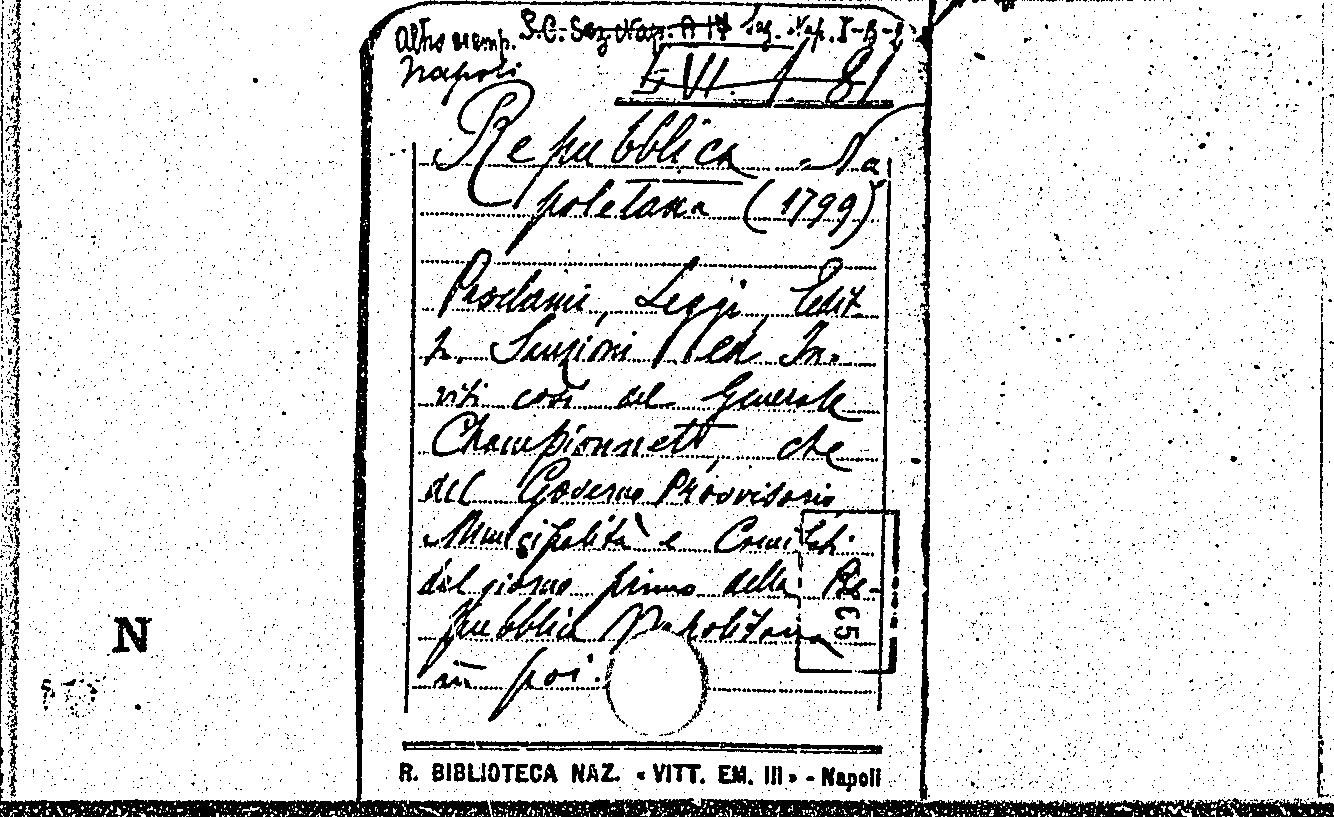 Altro esemp. S.C. Sez. Nap. A IV Sez. Nap. I-B-2
Napoli
VI. 1. 81
Repubblica Na
poletana (1799)
Proclami, Leggi, Edit
ti, Sanzioni ed In-
viti così del Generale
Championnett, che
del Governo Provvisorio,
Municipalità e Comitati
del giorno primo della Re-
pubblica Napolitana
in poi.
N
R. BIBLIOTECA NAZ. « VITT. EM. III » - Napoli